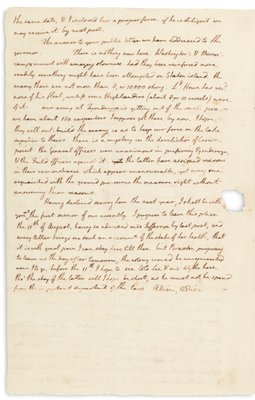 the same date, & I inclosed him a proper form: if he is diligent we
may receive it by next post.
The answer to your public letter we have addressed to the
governor. There is nothing new here. Washington's & Mercer's
camps recruit with amazing slowness. had they been reinforced more
readily something might have been attempted on Staten island. the
enemy there are not more than 8, or 10,000 strong. Ld. Howe has recd.
none of his fleet, unless some Highlanders (about 8 or 10 vessels) were
of it. our army at Tyonderoga is getting out of the small pox.
we have about 150 carpenters I suppose got there by now. I hope
they will out-build the enemy so as to keep our force on the lake
superior to theirs. there is a mystery in the dereliction of Crown-
point. the general officers were unanimous in preferring Tyonderoga,
& the Feild officers against it. the latter have assigned reasons
in their remonstrance which appear unanswerable, yet every one
acquainted with the ground pronounce the measure right without
answering these reasons.
Having declined serving here the next year, I shall be with
you the first session of our assembly. I propose to leave this place
the 11th of August, having so advised mrs Jefferson by last post, and
every letter brings me such an account of the state of her health, that
it is with great pain I can stay here till then. but Braxton purposing
to leave us the day after tomorrow, the colony would be unrepresented
were I to go, before the 11th. I hope to see Colo. Lee & mr Wythe here,
tho' the stay of the latter will I hope be short, as he must not be spared
from the important department of the law. Adieu, adieu.